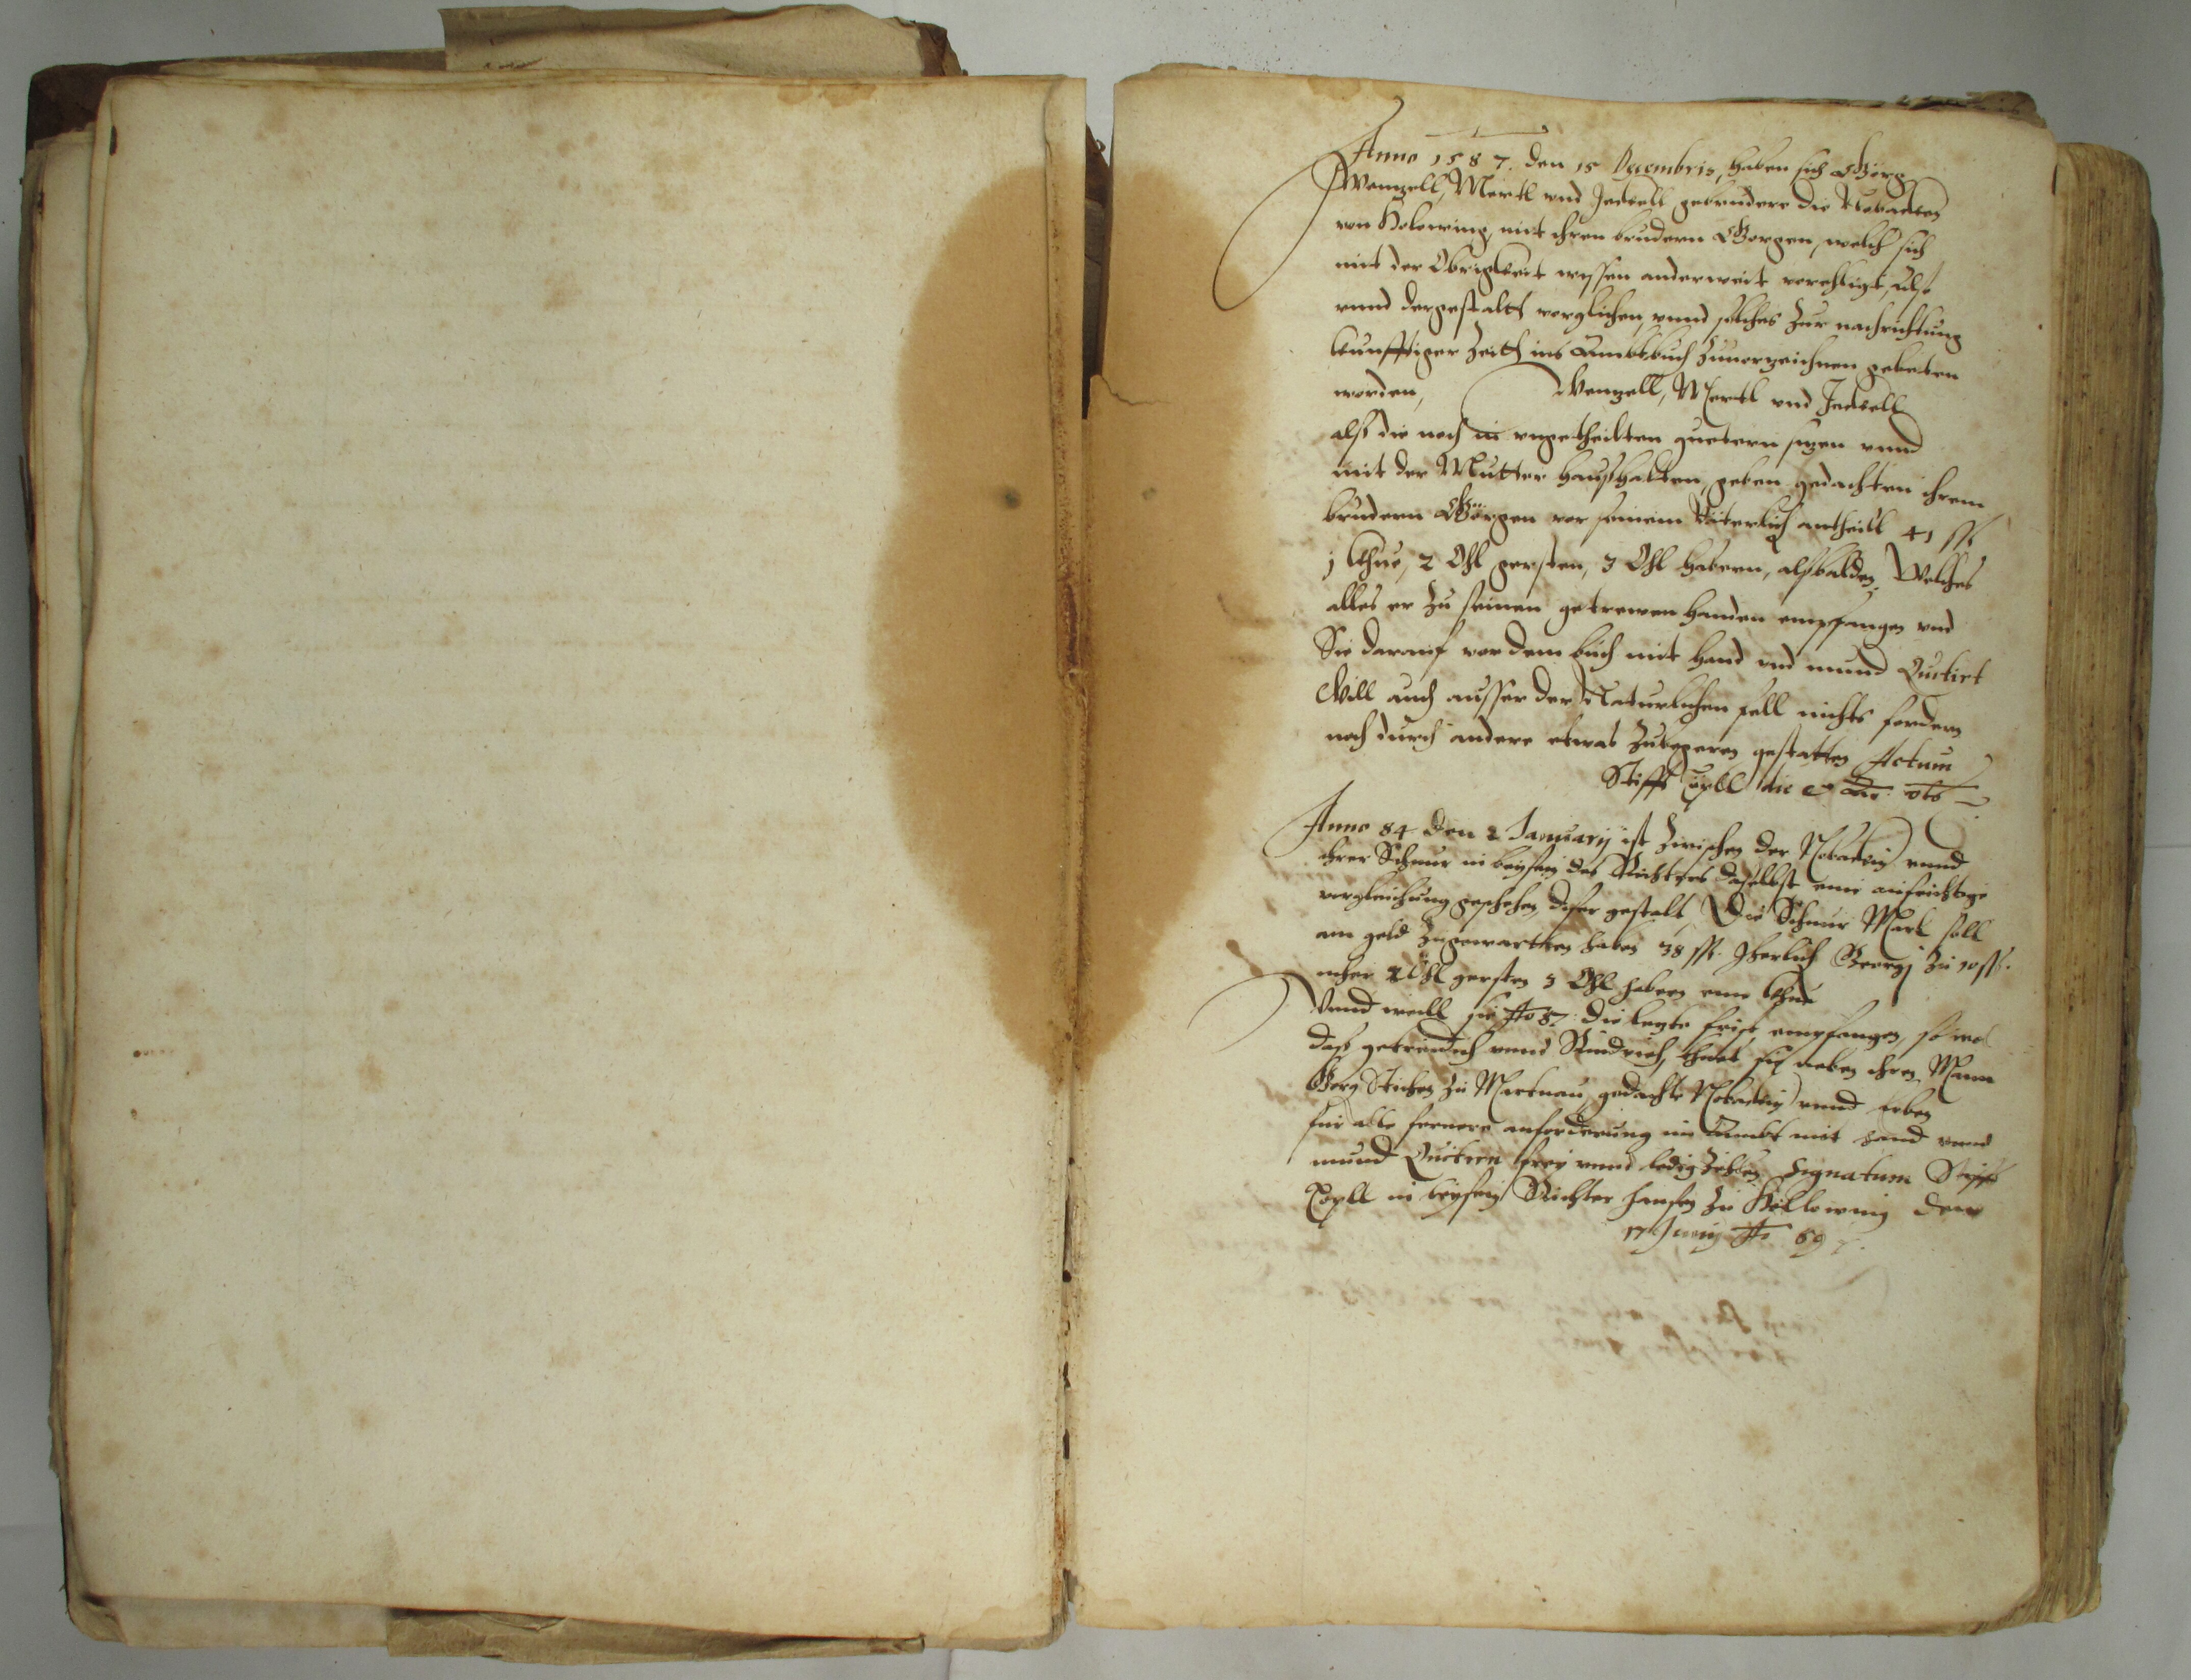 Anno 1587. den 15 Decembris, haben sich Görg
Wenzell, Mertl vnd Jackell gebrudere die
von Holowing, mit ihren brudern Görgen, welch sich
mit der Obrigkeit wissen anderweit verehligt, also
vnnd dergestaltt verglichen, vnnd solches zur nachrichtung
kunfftiger Zeitt ins Ambtbuch zuuorzeichnen gebeten
worden, Wenzell, Mertl vnd Jackell
alß die noch in vngetheilten guetern sizen vnnd
mit der Mutter haußhalten, geben gedachten ihrem
brudern Görgen vor seinem Väterlich antheill 41 ß
1 Khue, 2 Chl gersten, 3 Chl habern, alßbalden, Welches
alles er zu seinen getrewen handen empfangen vnd
Sie darauf vor dem buch mit hand vnd mund Quitirt
Will auch ausser der Naturlichen fell nichts fordern
noch durch andere etwas zubegeren gestatten Actum
Stifft Töpll die
Anno 84 den 2 Januarij ist zwischen der vnnd
ihrer Schnur in beysein des Richters daselbst eine aufrichtige
vergleichung geschehen, diser gestalt, Die Schnur Marl soll
am geld zugewartten haben 38 ß. Jherlich Georgj zu 10 ß.
mher 2 Chl gersten 3 Chl habern eine Khue
Vnnd weill sie Ao 87. die lezte frist empfangen, so wol
daß getreidich vnnd Rindvieh, thuet sie neben ihren Mann
Görg zu gedachte vnnd erben
für alle fernere anforderung im Ambt mit hand vnnd
mund Quitiren frey vnnd ledig zehlen Signatum Stifft
Töpll in beysein Richter hansen zu Hollowing den
17 Junij Ao 89.